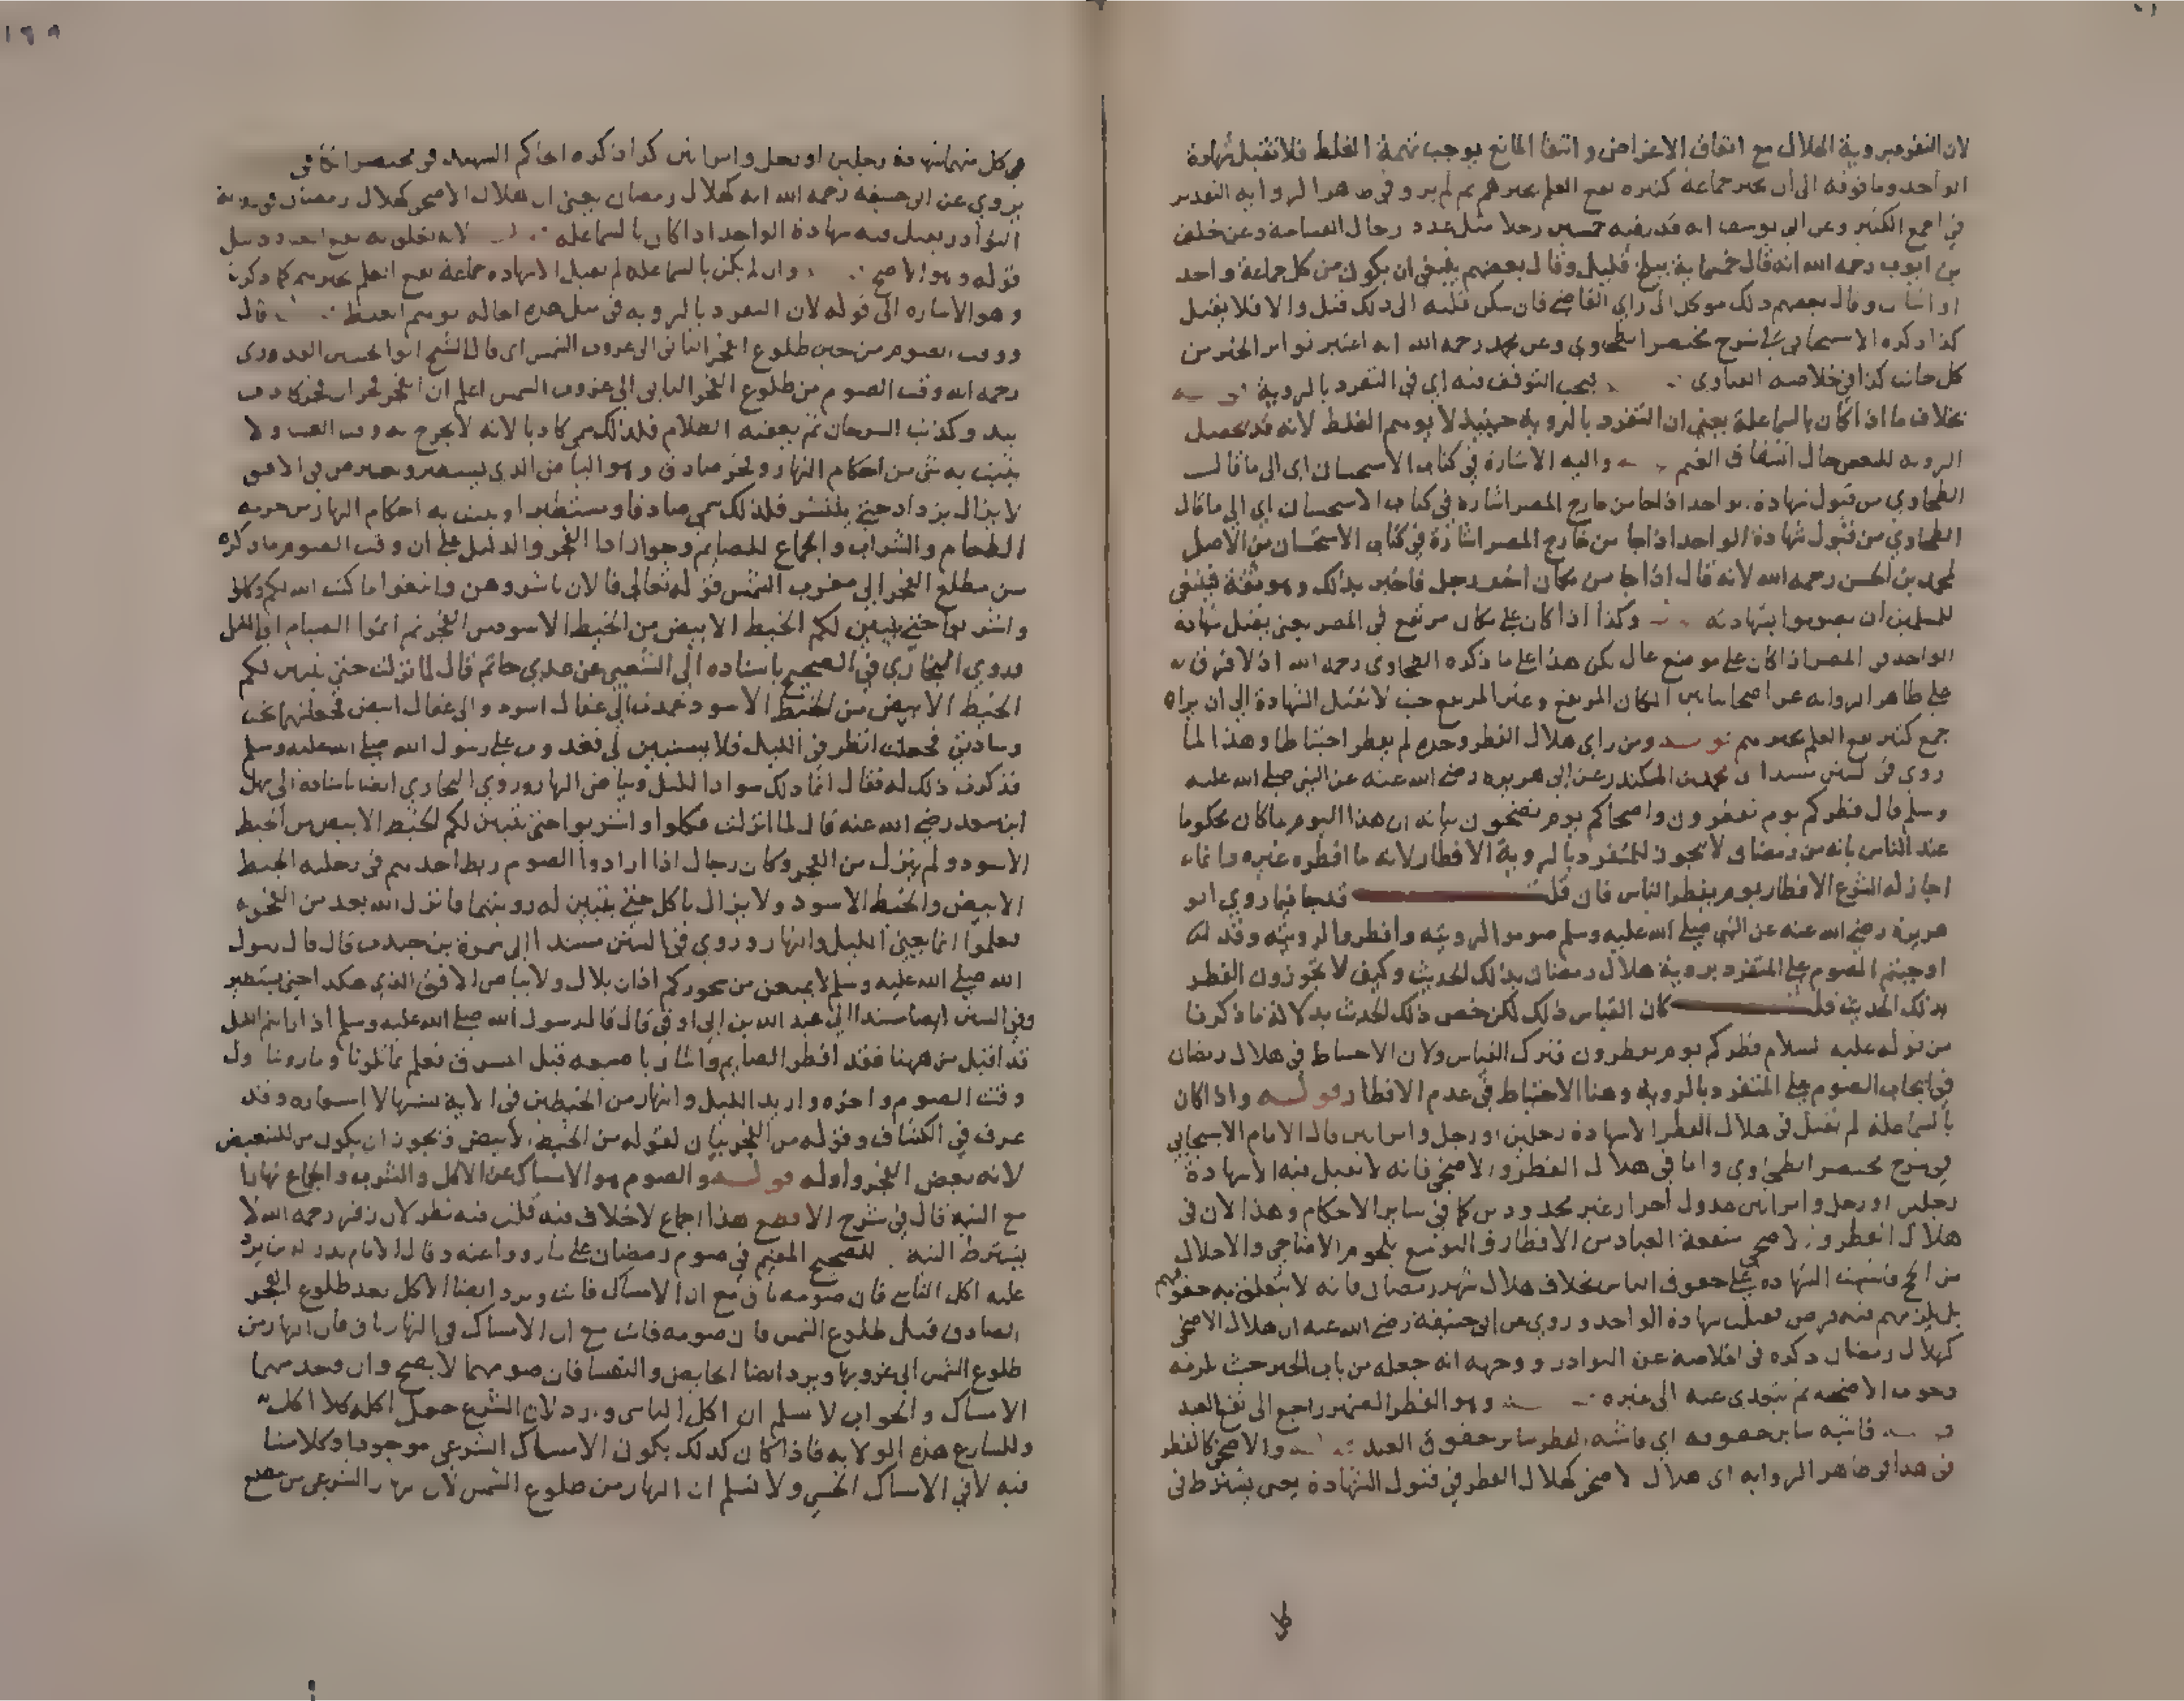 لان التفرد بروية الهلال مع اتفاق الاغراض وانتفا المانع يوجب تهمة الغلط فلا تقبل شهادة
الواحد وما فوقه الى ان يخبر جماعة كثيرة يقع العلم بخبرهم ثم لم يرو في ظاهر الرواية التقدير
في الجمع الكثير وعن ابي يوسف انه قدر فيه خمسين رجلا مثل عدد رجال القسامة وعن خلف
بن ايوب رحمه الله انه قال خمسماية ببلخ قليل وقال بعضهم ينبغي ان يكون من كل جماعة واحد
او اثنان وقال بعضهم ذلك موكل الى راي القاضي فان سكن قلبه الى ذلك قبل والا فلا يقبل
كذا ذكره الاسبيجابي في شرح مختصر الطحاوي وعن محمد رحمه الله انه اعتبر تواتر الخبر من
كل جانب كذا في خلاصة الفتاوى يجب التوقف فيه اي في التفرد بالروية
بخلاف ما اذا كان بالسما علة يعني ان التفرد بالروية حينيذ لا يوهم الغلط لانه قد يحصل
الروية للبعض حال انشقاق الغيم واليه الاشارة في كتاب الاستحسان اي الى ما قال
الطحاوي من قبول شهادة الواحد اذا جا من خارج المصر اشارة في كتاب الاستحسان اي الى ما قال
الطحاوي من قبول شهادة الواحد اذا جا من خارج المصر اشارة في كتاب الاستحسان من الاصل
لمحمد بن الحسن رحمه الله لانه قال اذا جا من مكان اخر رجل فاخبر بذلك وهو ثقة فينبغي
للمسلمين ان يصوموا بشهادته وكذا اذا كان على مكان مرتفع في المصر يعني يقبل شهادة
الواحد في المصر اذا كان على موضع عال لكن هذا على ما ذكره الطحاوي رحمه الله اذ لا فرق
على ظاهر الرواية عن اصحابنا بين المكان المرتفع وغير المرتفع حيث لا تقبل الشهادة الى ان يراه
جمع كثير يقع العلم بخبرهم قوله ومن راى هلال الفطر وحده لم يفطر احتياطا وهذا لما
روي في السنن مسندا الى محمد بن المنكدر عن ابي هريرة رضي الله عنه عن النبي صلى الله عليه
وسلم قال فطركم يوم تفطرون واضحاكم يوم تضحون بيانه ان هذا اليوم ما كان محكوما
عند الناس بانه من رمضان لا يجوز للمتفرد بالروية الافطار لانه ما افطره غيره وانما
اجاز له الشرع الافطار يوم يفطر الناس فان قلت قد جا فيما روي ابو
هريرة رضي الله عنه عن النبي صلى الله عليه وسلم صوموا لرويته وافطروا لرويته وقد
اوجبتم الصوم على المتفرد بروية هلال رمضان بذلك الحديث وكيف لا تجوزون الفطر
بذلك الحديث قلت كان القياس ذلك لكن خص ذلك الحديث بدلالة ما ذكرنا
من قوله عليه السلام فطركم يوم تفطرون فترك القياس ولان الاحتياط في هلال رمضان
في ايجاب الصوم على المتفرد بالروية وهنا الاحتياط في عدم الافطار قوله واذا كان
بالسما علة لم تقبل في هلال الفطر الا شهادة رجلين او رجل وامراتين قال الامام الاسبيجابي
في شرح مختصر الطحاوي واما في هلال الفطر والاضحى فانه لا تقبل فيه الا شهادة
رجلين او رجل وامراتين عدول احرار غير محدودين كما في ساير الاحكام وهذا لان في
هلال الفطر والاضحى منفعة العباد من الافطار والتوسع بلحوم الاضاحي والاحلال
من الحج فاشبهت الشهادة على حقوق الناس بخلاف هلال شهر رمضان فانه لا يتعلق به حقوقهم
بل يلزمهم فيه فرض فقبلت شهادة الواحد وروي عن ابي حنيفة رضي الله عنه ان هلال الاضحى
كهلال رمضان ذكره في الخلاصة عن النوادر ووجهه انه جعله من باب الخبر حيث يلزمه
وجوب الاضحية ثم يتعدى عنه الى غيره وهو الفطر الضمير راجع الى نفع العبد
فاشبه ساير حقوقه اي فاشبه الفطر ساير حقوق العبد والاضحى كالفطر
في هذا في ظاهر الرواية اي هلال الاضحى كهلال الفطر في قبول الشهادة يعني يشترط في
في كل منهما شهادة رجلين او رجل وامراتين كذا ذكره الحاكم الشهيد في مختصر الكافي
يروي عن ابي حنيفة رحمه الله انه كهلال رمضان يعني ان هلال الاضحى كهلال رمضان في رواية
النوادر يقبل فيه شهادة الواحد اذا كان بالسما علة لانه تعلق به نفع العبد
قوله وهو الاصح وان لم يكن بالسما علة لم يقبل الا شهادة جماعة يقع العلم بخبرهم كما ذكرنا
وهو الاشارة الى قوله لان التفرد بالروية في مثل هذه الحالة يوهم الغلط قال
ووقت الصوم من حين طلوع الفجر الثاني الى غروب الشمس اي قال الشيخ ابو الحسين القدوري
رحمه الله وقت الصوم من طلوع الفجر الثاني الى غروب الشمس اعلم ان الفجر فجران فجر كاذب
يبد وكذنب السرحان ثم يعقبه الظلام فلذلك سمي كاذبا لانه لا يخرج به وقت العشا ولا
يثبت به شي من احكام النهار وفجر صادق وهو البياض الذي يستطير ويعترض في الافق
لا يزال يزداد حتى ينتشر فلذلك سمي صادقا ومستطيرا ويثبت به احكام النهار من حرمة
الطعام والشراب والجماع للصايم وجواز ادا الفجر والدليل على ان وقت الصوم ما ذكره
من مطلع الفجر الى مغرب الشمس قوله تعالى فالان باشروهن وابتغوا ما كتب الله لكم وكلوا
واشربوا حتى يتبين لكم الخيط الابيض من الخيط الاسود من الفجر ثم اتموا الصيام الى الليل
وروي البخاري في الصحيح باسناده الى الشعبي عن عدي حاتم قال لما نزلت حتى يتبين لكم
الخيط الابيض من الخيط الاسود عمدت الى عقال اسود والى عقال ابيض فجعلتهما تحت
وسادتي فجعلت انظر في الليل فلا يستبين لي فغدوت على رسول الله صلى الله عليه وسلم
فذكرت ذلك له فقال انما ذلك سواد الليل وبياض النهار وروي البخاري ايضا باسناده الى سهل
ابن سعد رضي الله عنه قال لما انزلت فكلوا واشربوا حتى يتبين لكم الخيط الابيض من الخيط
الاسود ولم ينزل من الفجر وكان رجال اذا ارادوا الصوم ربط احدهم في رجليه الخيط
الابيض والخيط الاسود ولا يزال ياكل حتى يتبين له رويتهما فانزل الله بعد من الفجر
فعلموا انما يعني الليل والنهار وروي في السنن مسندا الى سمرة بن جندب قال قال رسول
الله صلى الله عليه وسلم لا يمنعن من سحوركم اذان بلال ولا بياض الافق الذي هكذا حتى يستطير
وفي السنن ايضا مسندا الى عبد الله بن ابي اوفى قال قال رسول الله صلى الله عليه وسلم اذا رايتم الليل
قد اقبل من ههنا فقد افطر الصايم واشار باصبعه قبل المشرق فعلم بما تلونا وما روينا اول
وقت الصوم واخره واريد الليل والنهار من الخيطين في الاية تشبيها لا استعارة وقد
عرف في الكشاف وقوله من الفجر بيان لقوله من الخيط الابيض ويجوز ان يكون من للتبعيض
لانه بعض الفجر واوله قوله والصوم هو الامساك عن الاكل والشرب والجماع نهارا
مع النية قال في شرح الاقطع هذا اجماع لا خلاف فيه قلت فيه نظر لان زفر رحمه الله لا
يشترط النية للصحيح المقيم في صوم رمضان على ما رووا عنه وقال الامام بدر الدين يرد
عليه اكل الناسي فان صومه باق مع ان الامساك فايت ويرد ايضا الاكل بعد طلوع الفجر
الصادق قبل طلوع الشمس فان صومه فايت مع ان الامساك في النهار باق فان النهار من
طلوع الشمس الى غروبها ويرد ايضا الحايض والنفسا فان صومهما لا يصح وان وجد منهما
الامساك والجواب لا نسلم ان اكل الناس وارد لان الشرع جعل اكله كلا اكل
وللشارع هذه الولاية فاذا كان كذلك يكون الامساك الشرعي موجودا وكلامنا
فيه لا في الامساك الحسي ولا نسلم ان النهار من طلوع الشمس لان نهار الشرعي من مطلع